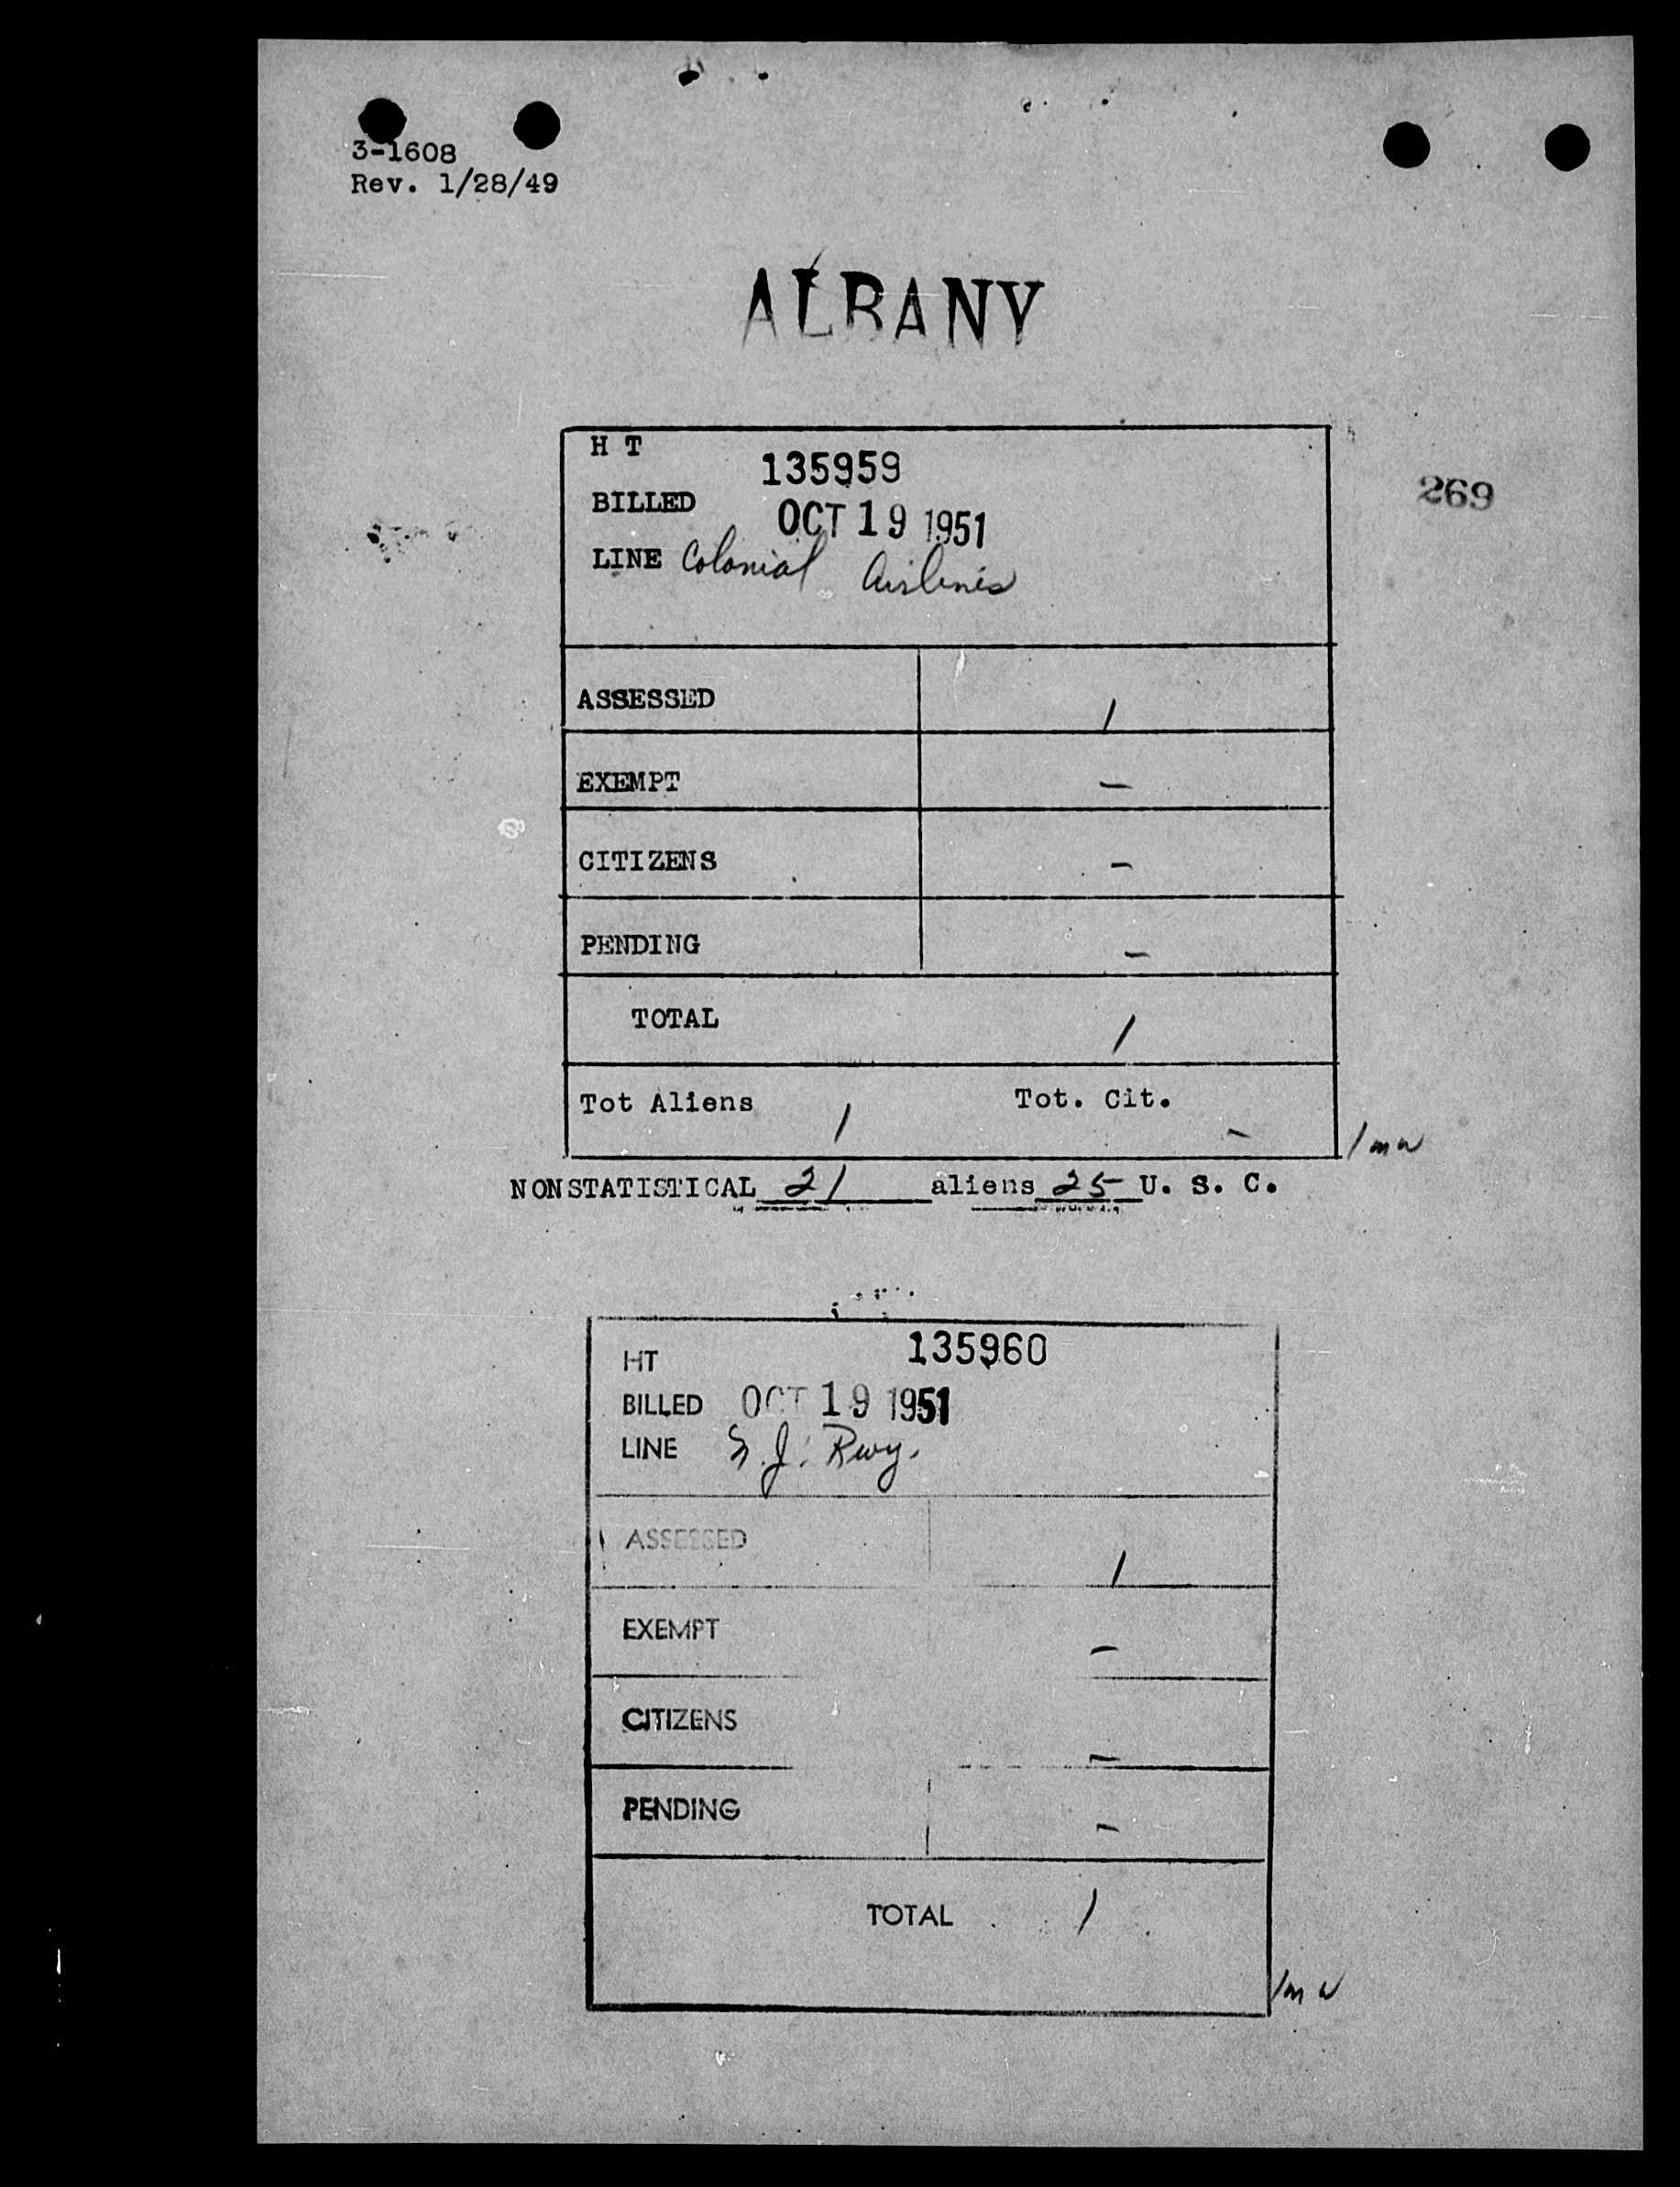 3-1608
Rev. 1/28/49
ALBANY
269
H T 135959
BILLED OCT 19 1951
LINE Colonial Airlines
ASSESSED 1
EXEMPT -
CITIZENS -
PENDING -
TOTAL 1
Tot Aliens 1 Tot. Cit. -
/mw
NONSTATISTICAL 21 aliens 25 U. S. C.
HT 135960
BILLED OCT 19 1951
LINE J. Rwy.
ASSESSED 1
EXEMPT -
CITIZENS -
PENDING -
TOTAL 1
/mw